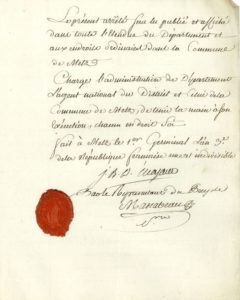 Le présent arrêté sera lu publié et affiché
dans toute l'étendue du Département et
aux endroits ordinaires dans la Commune
de Metz
Charge l'administration du Département
l'agent national du District et Celui de la
Commune de Metz, de tenir la main à son
Exécution, chacun en droit soi
fait à Metz le 1.er Germinal L'an 3.e
de la République française une et indivisible
Par le Représentant du Peuple